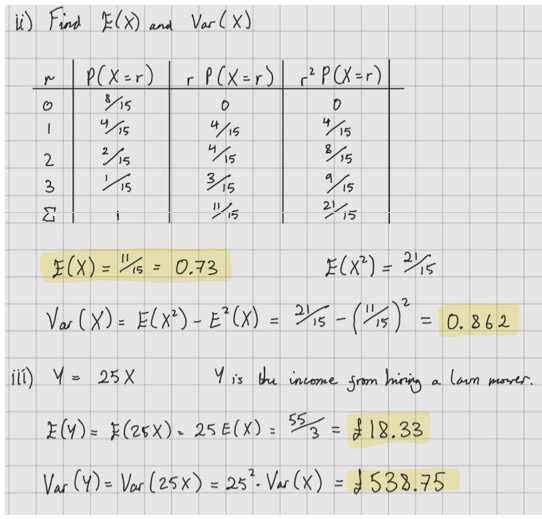 ii) Find E(X) and Var(X)
r P(X=r) r P(X=r) r² P(X=r)
0 8/15 0 0
1 4/15 4/15 4/15
2 2/15 4/15 8/15
3 1/15 3/15 9/15
Σ 1 11/15 21/15
E(X) = 11/15 = 0.73 E(X²) = 21/15
Var(X) = E(X²) - E²(X) = 21/15 - (11/15)² = 0.862
iii) Y = 25X Y is the income from hiring a lawn mower.
E(Y) = E(25X) = 25E(X) = 55/3 = £18.33
Var(Y) = Var(25X) = 25². Var(X) = £538.75